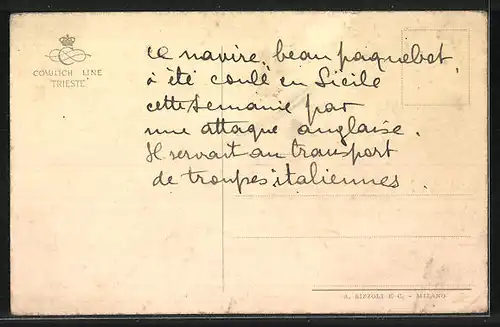 COSULICH LINE
TRIESTE
ce navire, beau paquebot,
a été coulé en Sicile
cette semanie par
une attaque anglaise.
Il servait au transport
de troupes italiennes.
A. RIZZOLI E C. - MILANO